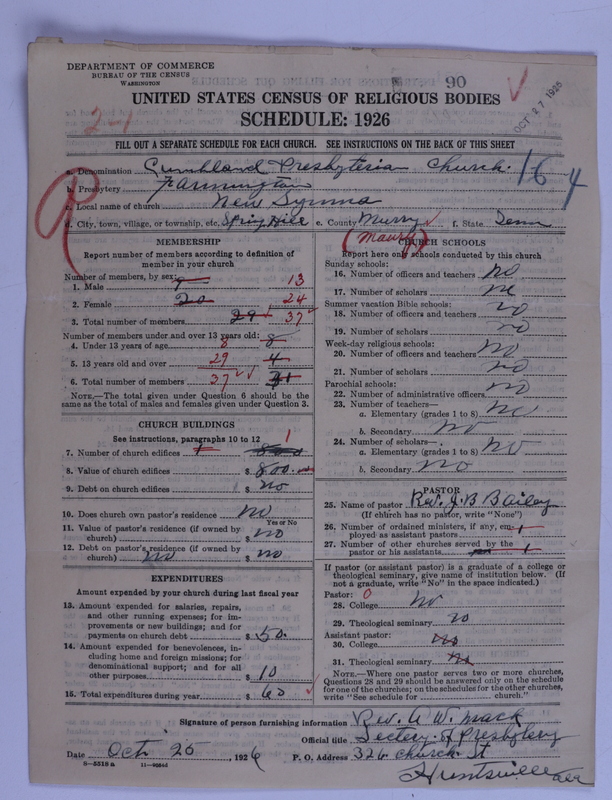 DEPARTMENT OF COMMERCE
BUREAU OF THE CENSUS
WASHINGTON
90
OCT 27 1926
2-1
UNITED STATES CENSUS OF RELIGIOUS BODIES
SCHEDULE: 1926
FILL OUT A SEPARATE SCHEDULE FOR EACH CHURCH. SEE INSTRUCTIONS ON THE BACK OF THIS SHEET
R
16 4
a. Denomination Cumbland Presbytesia Church.
b. Presbytery
c. Local name of church New
d. City, town, village, or township, etc. Spring Hill e. County Murry f. State Tenn
(Maury)
MEMBERSHIP
Report number of members according to definition of
member in your church
Number of members, by sex:
1. Male 9 13
2. Female 20 24
3. Total number of members 29 37
Number of members under and over 13 years old:
4. Under 13 years of age 8 8
5. 13 years old and over 29 4
6. Total number of members 37
NOTE.—The total given under Question 6 should be the
same as the total of males and females given under Question 3.
CHURCH BUILDINGS
See instructions, paragraphs 10 to 12 1
7. Number of church edifices 1 800
8. Value of church edifices $ 800.
9. Debt on church edifices $ no
10. Does church own pastor's residence no
Yes or No
11. Value of pastor's residence (if owned by
church) $ no
12. Debt on pastor's residence (if owned by
church) no $ no
EXPENDITURES
Amount expended by your church during last fiscal year
13. Amount expended for salaries, repairs,
and other running expenses; for im-
provements or new buildings; and for
payments on church debt $ 50.
14. Amount expended for benevolences, in-
cluding home and foreign missions; for
denominational support; and for all
other purposes $ 10
15. Total expenditures during year $ 60
CHURCH SCHOOLS
Report here only schools conducted by this church
Sunday schools:
16. Number of officers and teachers no
17. Number of scholars no
Summer vacation Bible schools:
18. Number of officers and teachers no
19. Number of scholars no
Week-day religious schools:
20. Number of officers and teachers no
21. Number of scholars no
Parochial schools:
22. Number of administrative officers no
23. Number of teachers—
a. Elementary (grades 1 to 8) no
b. Secondary no
24. Number of scholars—
a. Elementary (grades 1 to 8) no
b. Secondary no
PASTOR
25. Name of pastor Rev. J. B Bailey
(If church has no pastor, write "None")
26. Number of ordained ministers, if any, em-
ployed as assistant pastors 1
27. Number of other churches served by the
pastor or his assistants 1
If pastor (or assistant pastor) is a graduate of a college or
theological seminary, give name of institution below. (If
not a graduate, write "No" in the space indicated.)
Pastor: 0
28. College no
29. Theological seminary no
Assistant pastor:
30. College no
31. Theological seminary no
NOTE.—Where one pastor serves two or more churches,
Questions 28 and 29 should be answered only on the schedule
for one of the churches; on the schedules for the other churches,
write "See schedule for church."
Signature of person furnishing information Rev. A W. Mack
Official title Sectery of Presbytery
Date Oct 25, 1926 P. O. Address 326 church St
8—5518 a
Huntsville ala